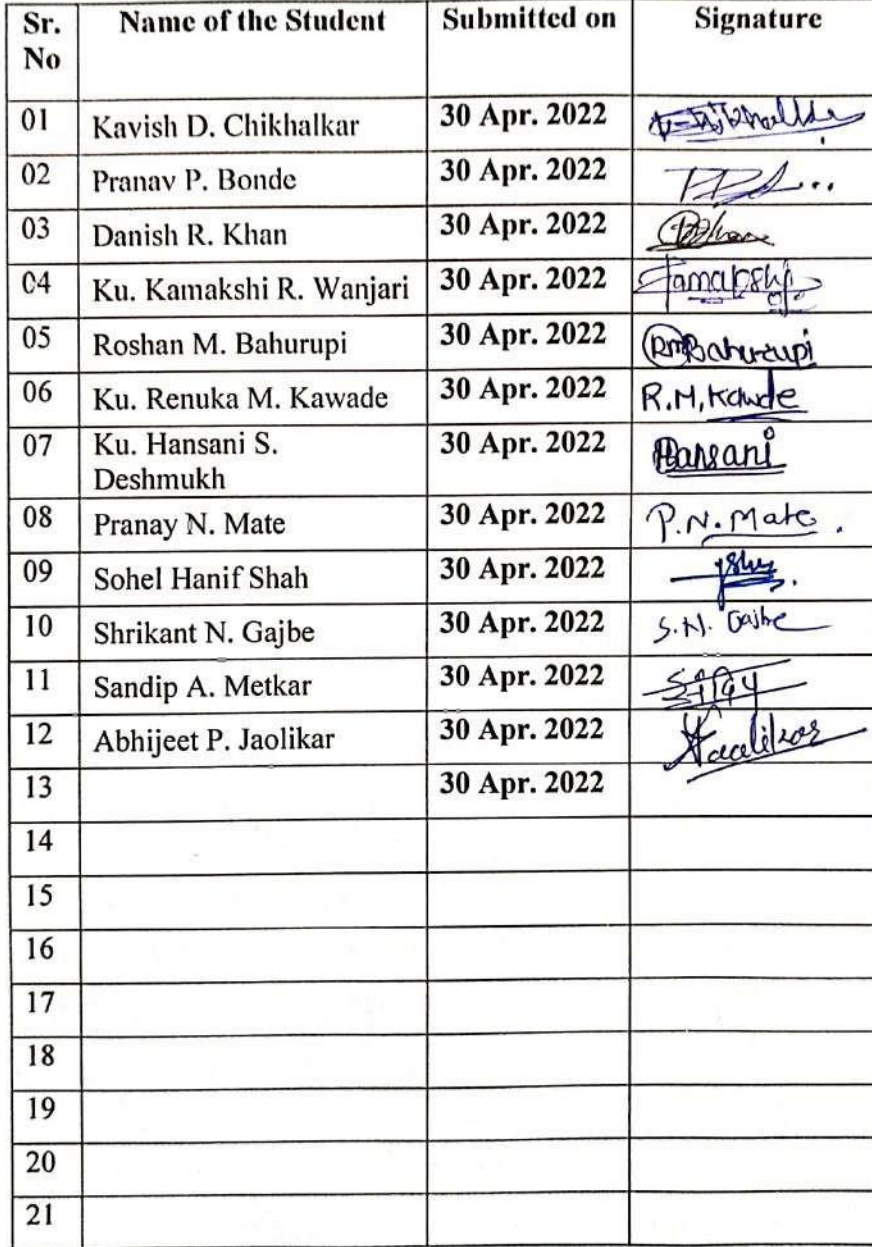 Sr. No Name of the Student Submitted on Signature
01 Kavish D. Chikhalkar 30 Apr. 2022
02 Pranav P. Bonde 30 Apr. 2022
03 Danish R. Khan 30 Apr. 2022
04 Ku. Kamakshi R. Wanjari 30 Apr. 2022 Kamakshi
05 Roshan M. Bahurupi 30 Apr. 2022 RMBahurupi
06 Ku. Renuka M. Kawade 30 Apr. 2022 R.M.Kawde
07 Ku. Hansani S. Deshmukh 30 Apr. 2022 Hansani
08 Pranay N. Mate 30 Apr. 2022 P.N. Mate.
09 Sohel Hanif Shah 30 Apr. 2022
10 Shrikant N. Gajbe 30 Apr. 2022 S.N. Gajbe
11 Sandip A. Metkar 30 Apr. 2022
12 Abhijeet P. Jaolikar 30 Apr. 2022
13 30 Apr. 2022
14
15
16
17
18
19
20
21